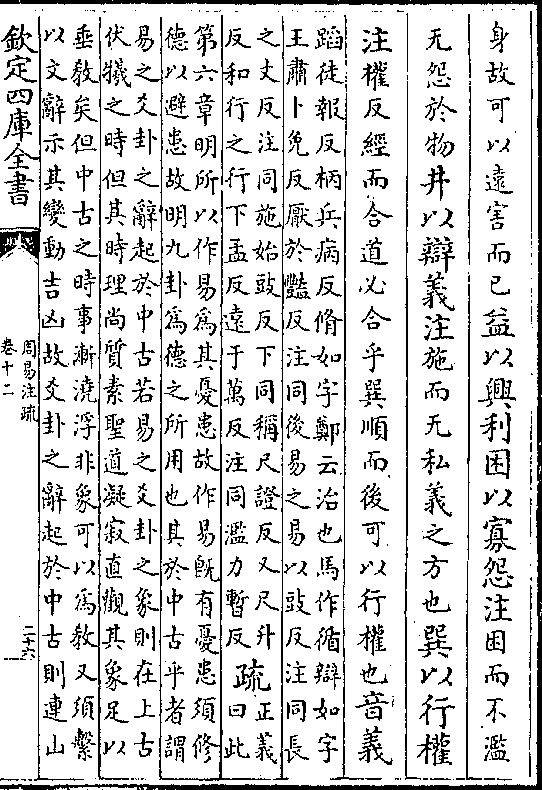 身故可以遠害而已益以興利困以寡怨注困而不濫
无怨於物井以辯義注施而无私義之方也巽以行權
注權反經而合道必合乎巽順而後可以行權也音義
蹈徒報反柄兵病反脩如字鄭云治也馬作循辯如字
王肅卜免反厭於豔反注同後易之易以豉反注同長
之丈反注同施始豉反下同稱尺證反又尺升
反和行之行下孟反遠于萬反注同濫力暫反
疏正義
曰此
第六章明所以作易為其憂患故作易旣有憂患須修
德以避患故明九卦為德之所用也其於中古乎者謂
易之爻卦之辭起於中古若易之爻卦之象則在上古
伏犧之時但其時理尚質素聖道凝寂直觀其象足以
垂敎矣但中古之時事漸澆浮非象可以為敎又須繫
以文辭示其變動吉凶故爻卦之辭起於中古則連山
欽定四庫全書
周易注疏
卷十二
二十六